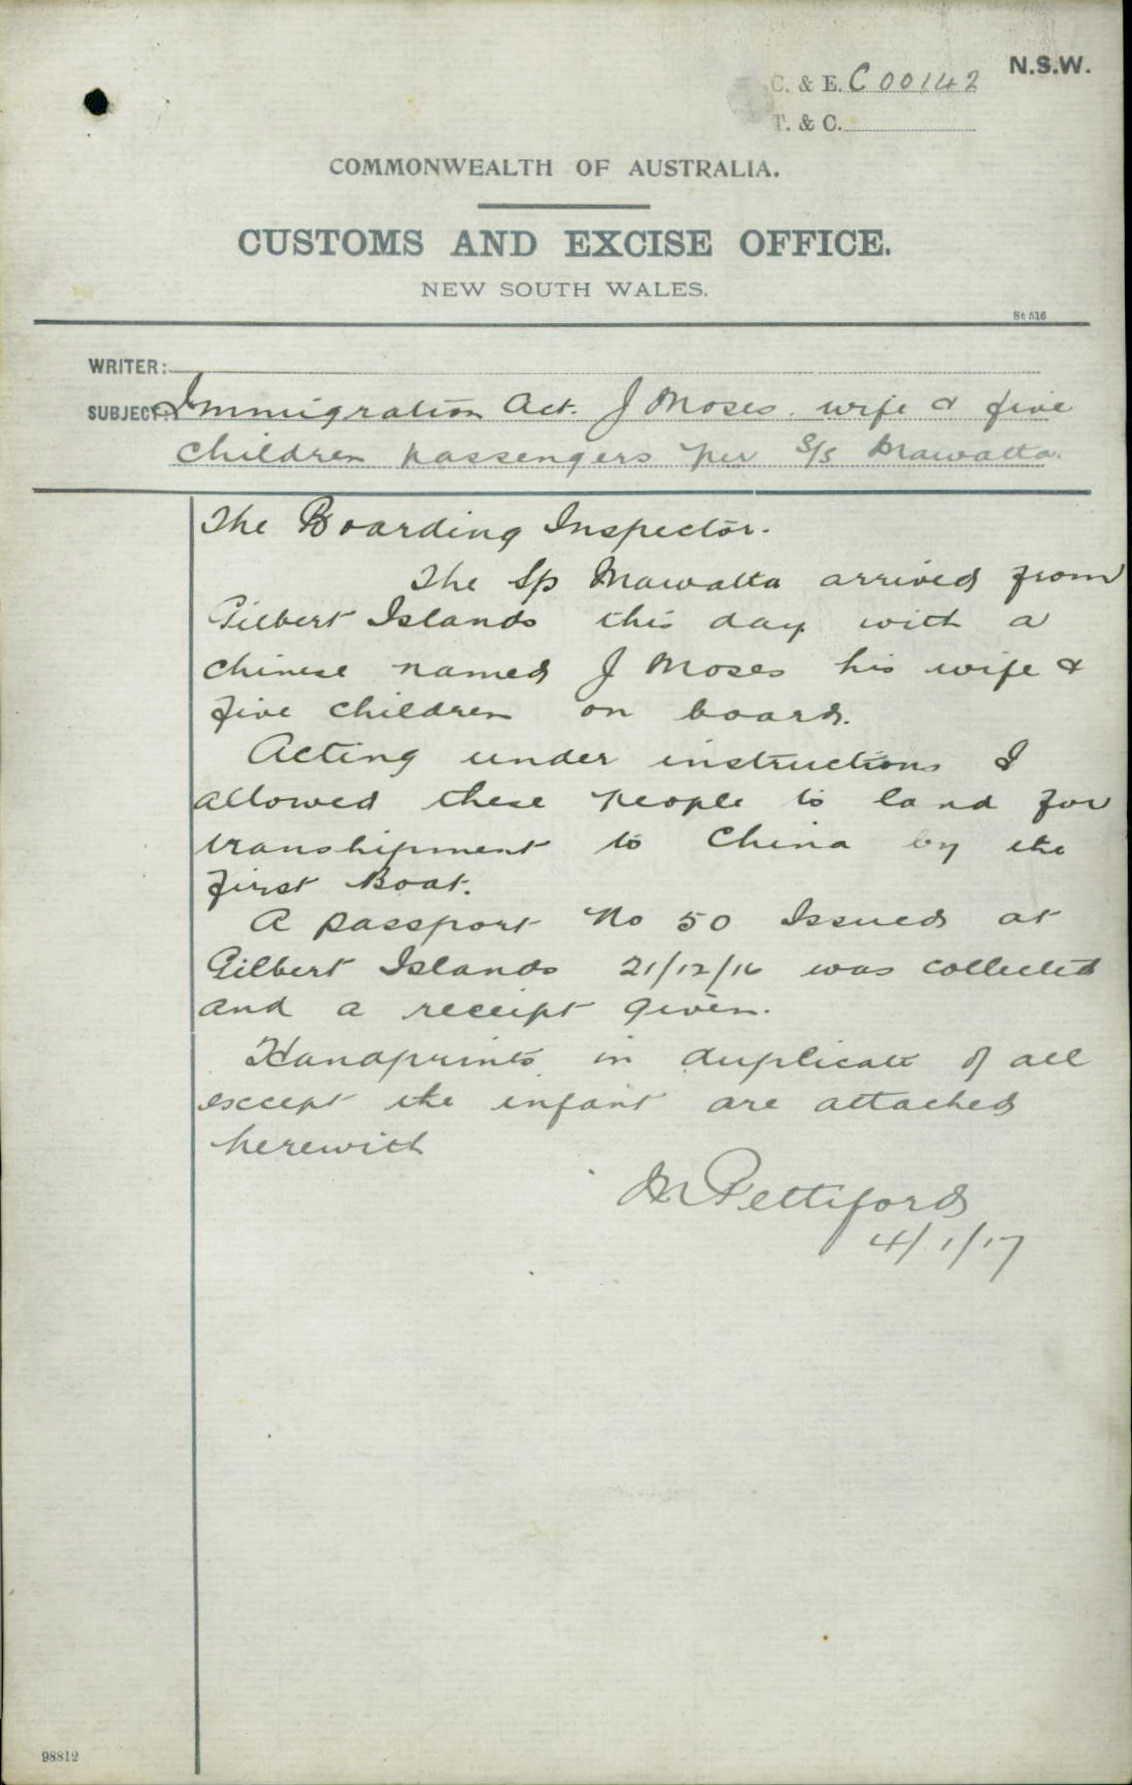 N.S.W.
C. & E. C 00142
T. & C.
COMMONWEALTH OF AUSTRALIA.
CUSTOMS AND EXCISE OFFICE.
NEW SOUTH WALES.
St 516
WRITER:
SUBJECT: Immigration Act. J Moses. wife & five
children passengers per S/S Mawatta.
The Boarding Inspector.
The Sp Mawatta arrived from
Gilbert Islands this day with a
Chinese named J Moses his wife &
five children on board.
Acting under instructions I
allowed these people to land for
transhipment to China by the
first Boat.
A passport No 50 Issued at
Gilbert Islands 21/12/16 was collected
and a receipt given.
Handprints in duplicate of all
except the infant are attached
herewith
Pettiford
4/1/17
98812